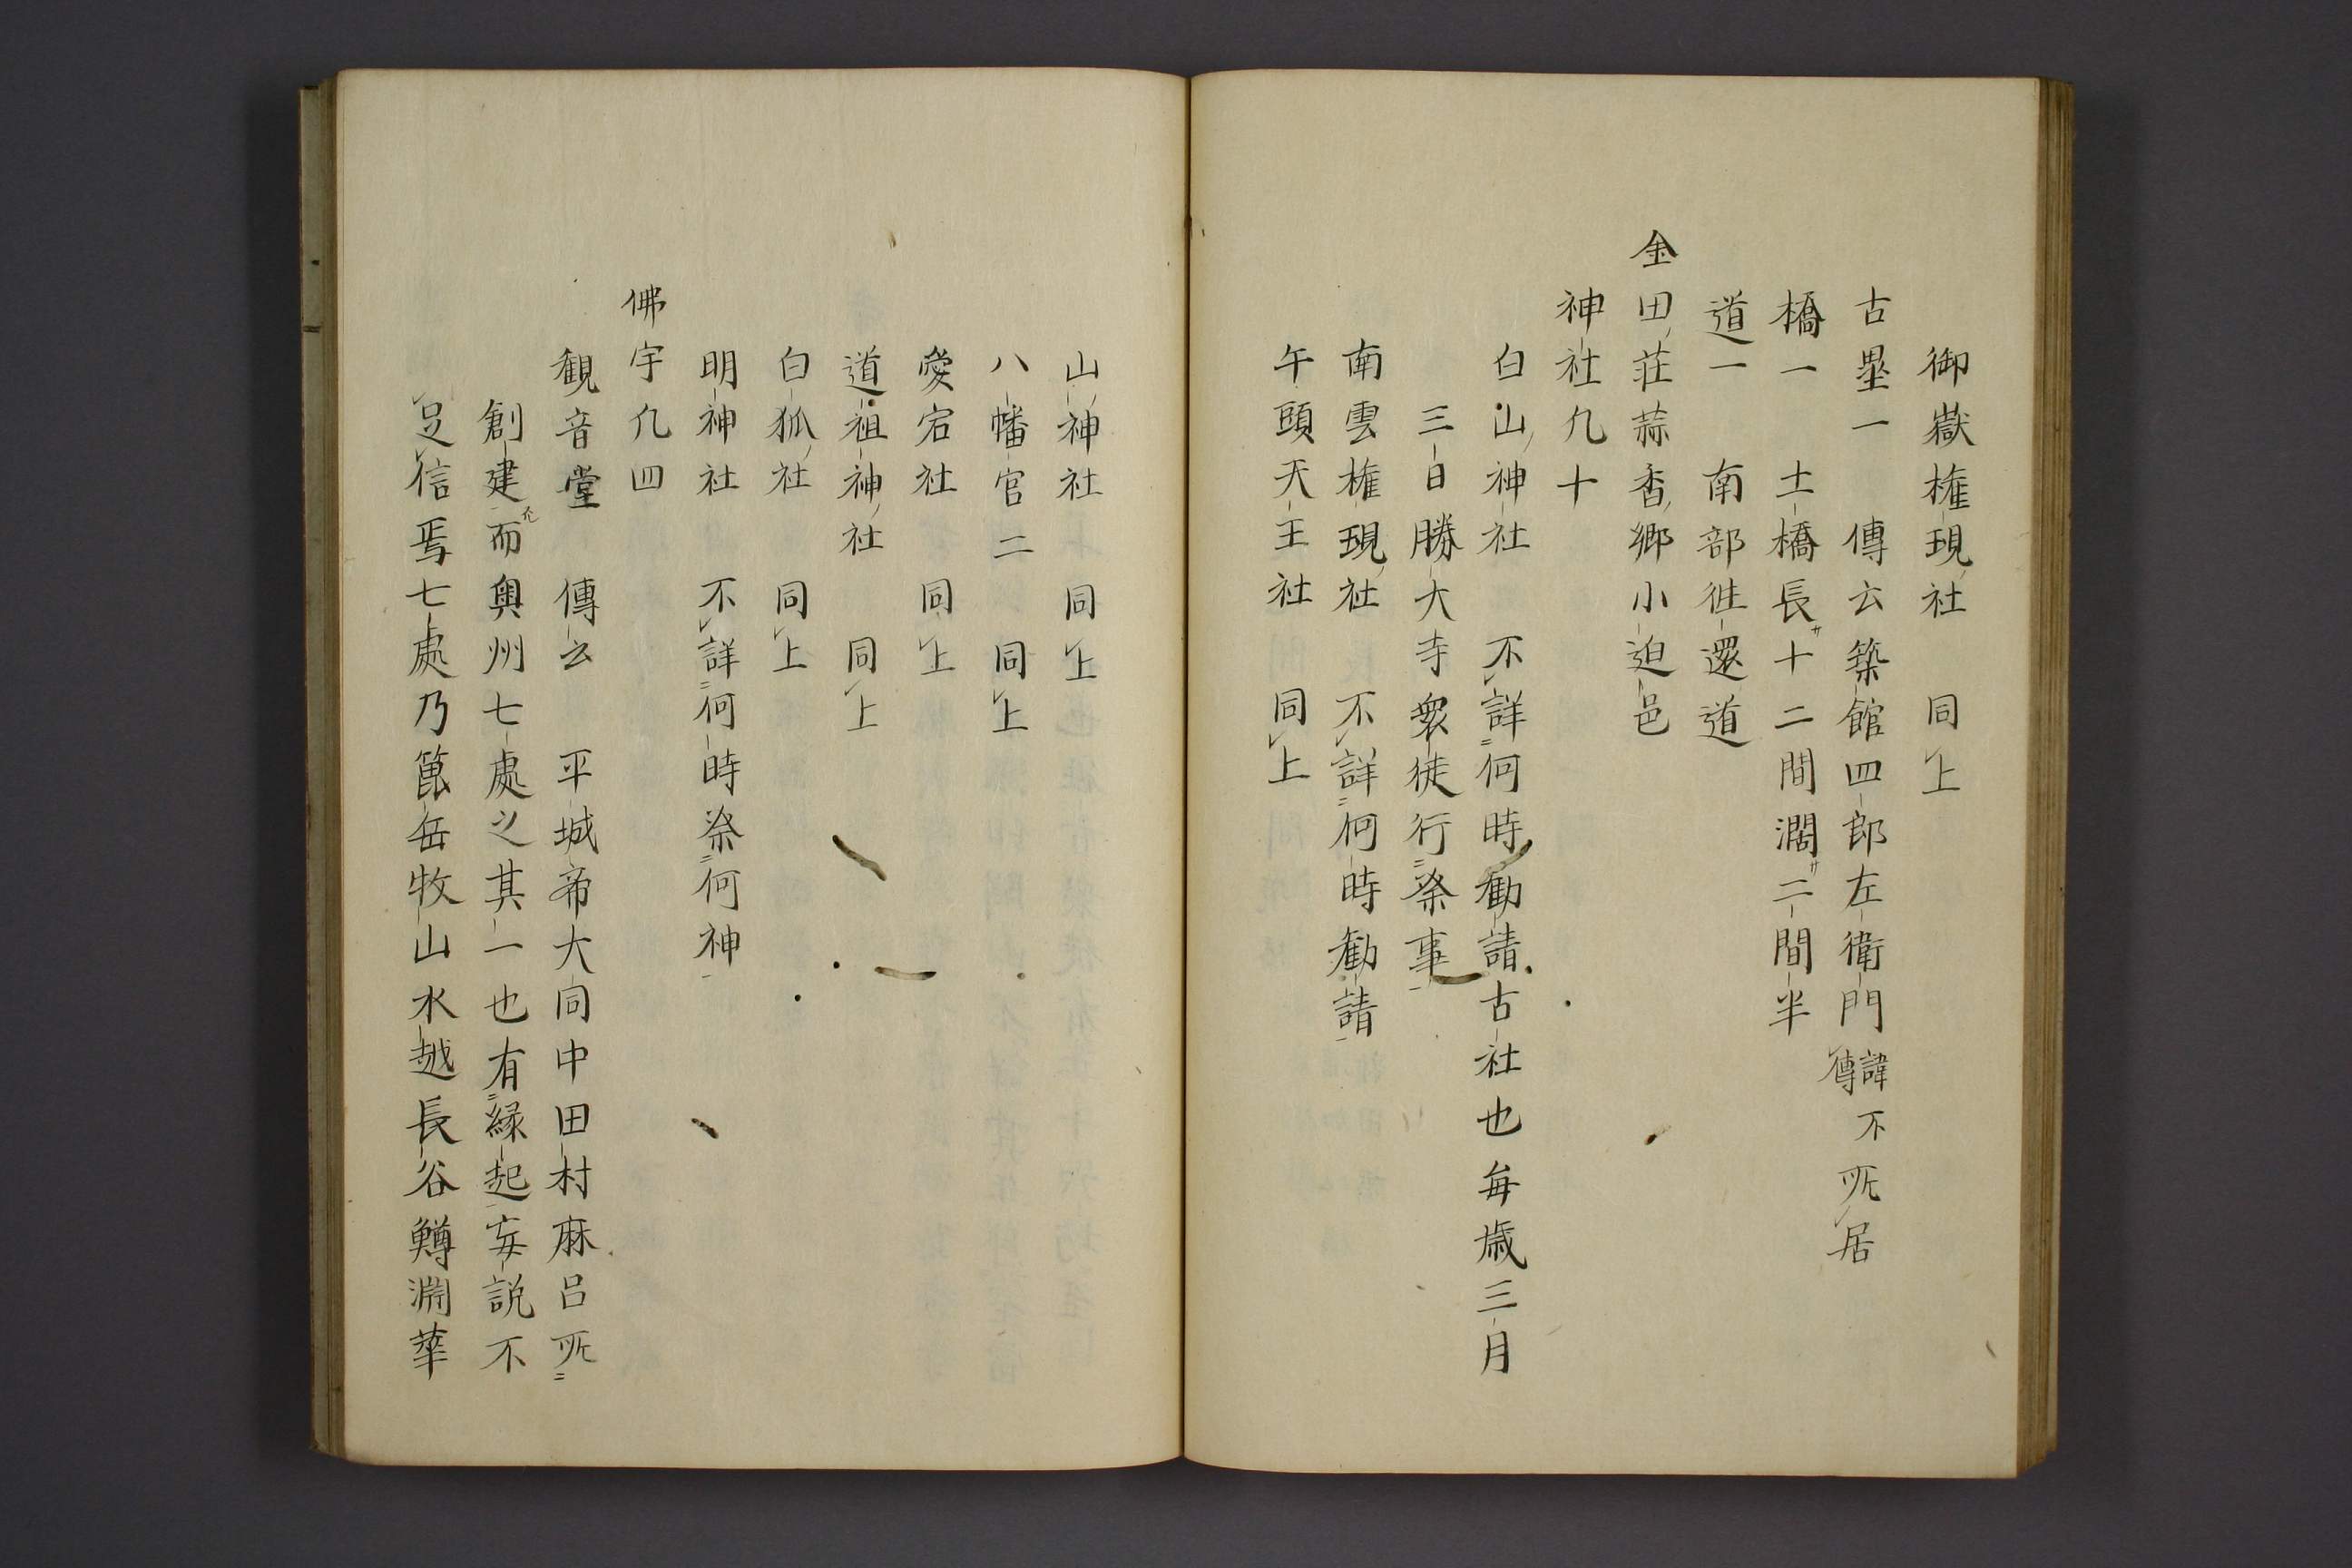 御嶽権現社　同上
古塁一　傳云築館四郎左衛門諱不傳所居
橋一　土橋長サ十二間濶サ二間半
道一　南部徃還道
金田荘蒜香郷小迫邑
神社凢十
白山神社　不詳何時勧請古社也毎歳三月
三日勝大寺衆徒行祭事
南雲権現社　不詳何時勧請
午頭天王社　同上
山神社　同上
八幡官二　同上
愛宕社　同上
道祖神社　同上
白狐社　同上
明神社　不詳何時祭何神
佛宇凢四
観音堂　傳云　平城帝大同中田村麻呂所
創建而奥州七處之其一也有縁起妄説不
足信焉七處乃箟岳牧山水越長谷鱒渕華